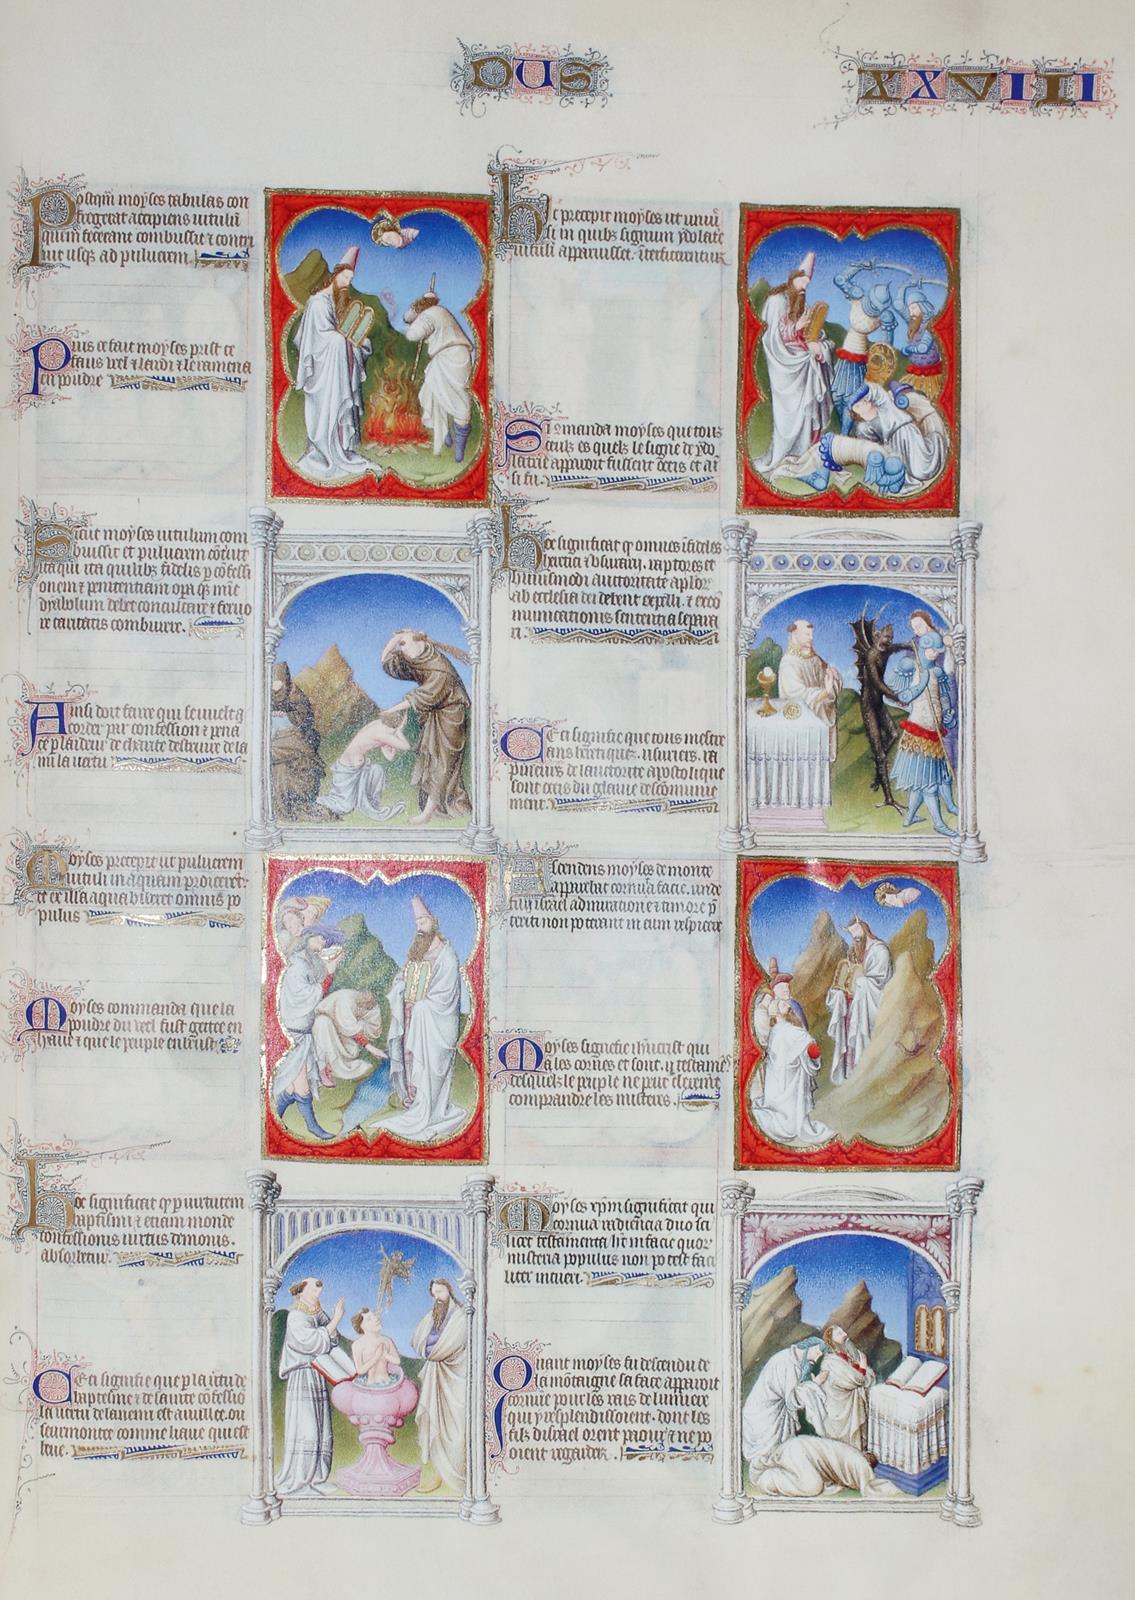 DUS
XXVIII
Postqm moyses tabulas con
fregerat accipiens uitulu
quem fecerant combussit & contri
uit usqs ad puluerem
Puis ce fait moyses prist ce
faus veel & lardi & le ramena
en poudre
Sicut moyses uitulum com
bussit et puluerem
ita qui ita quilibz fidelis p cofessi
onem & penitentiam opa qs
dyabolum debet conculcare & feruo
re caritatis comburere.
Ainsi doit faire qui se uuelt a
corder par confession & pena
ce p lardeur de charite destruire de la
mi la uertu
Moyses precepit ut puluerem
uituli in aquam proiceret
et ex illa aqua biberet omnis po
pulus
Moyses commanda que la
poudre du veel fust gettee en
liaue & que le peuple en beust
Hoc significat q p uirtutem
baptismi & etiam monde
confessionis uirtus demonis
absorbetur.
Ceci signifie que p la uertu de
baptesme & de sainte cofessio
la uertu de lanemi est auullee. ou
seurmontee comme liaue qui est
beue.
Hic precepit moyses ut uniusi
si in quibz signum ydolatrie
uituli apparuisset. interficerentur
Si comanda moyses que tous
ceulz es quelz le signe de ydo
latrie apparoit fussent occis et ai
si fu.
Hoc significat q omnes infideles
heretici & usurarii. raptores et
huiusmodi auctoritate aplorum
ab ecclesia dei debent expelli. & exco
municationis sententia separa
ri.
Ceci signifie que tous mescre
ans heretiques. usuriers. ra
pineurs de lauctorite apostolique
sont occis du glaiue descomunie
ment.
Ascendens moyses de monte
apparebat cornuta facie. unde
filii israel admiratione & timore p
territi non poterant in eum respicere
Moyses signefie ihucrist qui
a les cornes et sont .ii. testamens
desquelz le peuple ne peut clerement
comprandre les misteres.
Moyses xpm significat qui
cornua indicencia duo sci
licet testamenta het in facie quor
misteria populus non potest faci
liter intueri.
Quant moyses fu descendu de
la montaigne sa face apparoit
cornue pour les rais de lumiere
qui y resplendissoient. dont les
filz disrael orent paour & ne po
oient regarder.